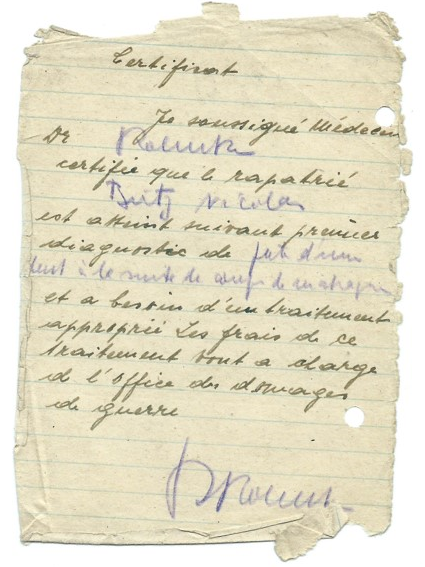 Certificat
Je soussigné Médecin
Dr
certifie que le rapatrié
Birtz Nicolas
est atteint suivant premier
diagnostic de perte d'une
dent à la suite de coups de matraque
et a besoin d'un traitement
approprié Les frais de ce
traitement vont a charge
de l'office des domages
de guerre